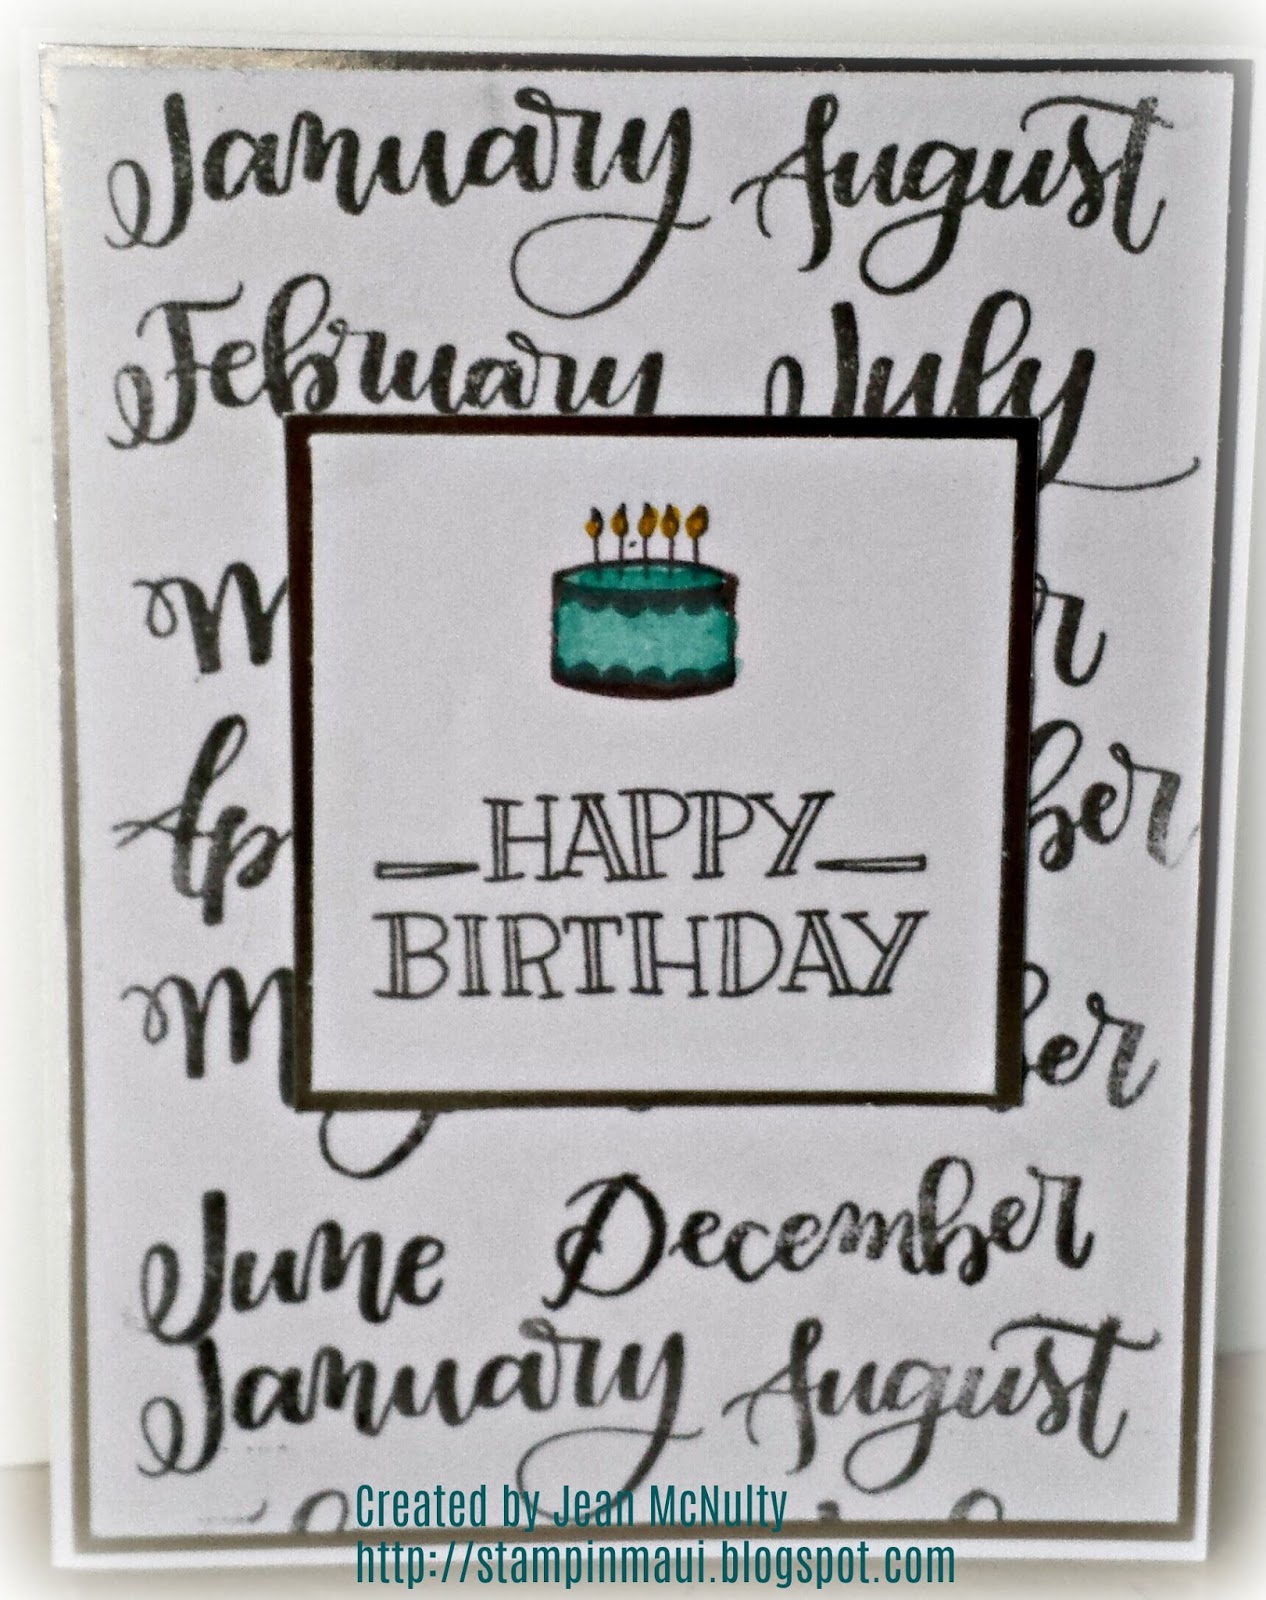 January August
February July
HAPPY
BIRTHDAY
June December
January August
Created by Jean McNulty
http://stampinmaui.blogspot.com